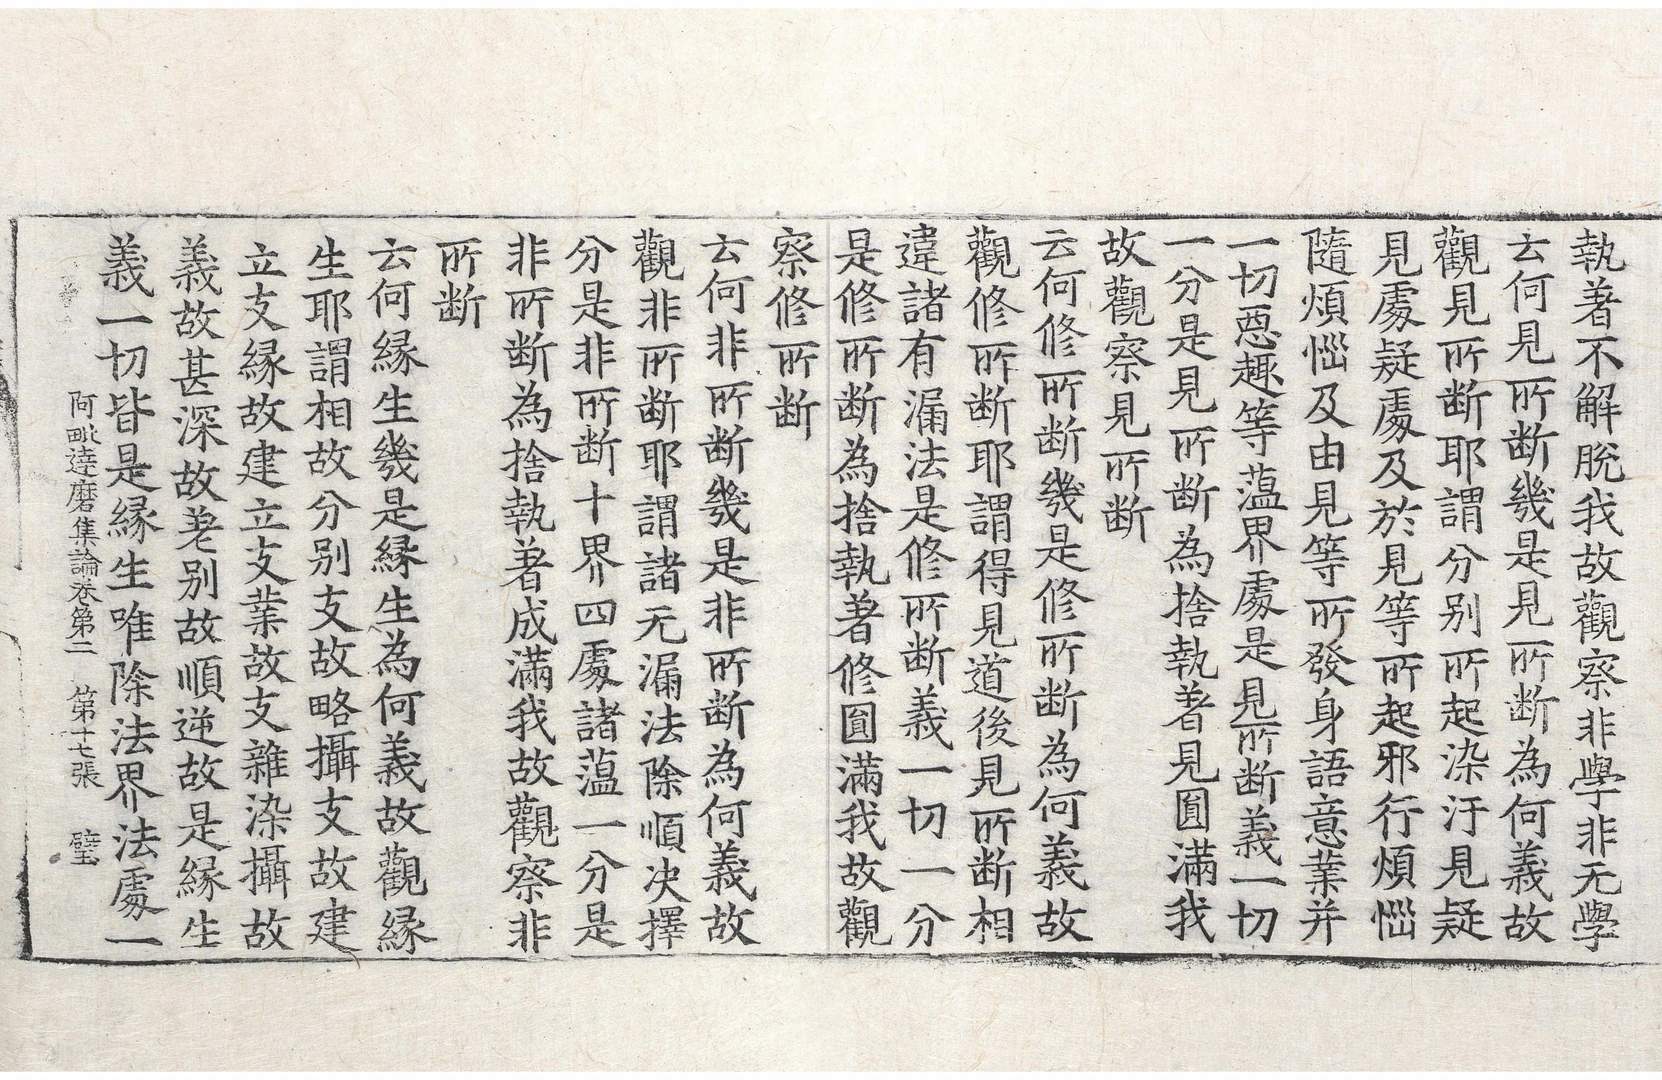 執著不解脫我故觀察非學非无學
云何見所断幾是見所断為何義故
觀見所断耶謂分别所起染汙見疑
見處疑處及於見等所起邪行煩惱
隨煩惱及由見等所發身語意業并
一切惡趣等蕰界處是見所断義一切
一分是見所断為捨執著見圓滿我
故觀察見所断
云何修所断幾是修所断為何義故
觀修所断耶謂得見道後見所断相
違諸有漏法是修所断義一切一分
是修所断為捨執著修圓滿我故觀
察修所断
云何非所断幾是非所断為何義故
觀非所断耶謂諸无漏法除順决擇
分是非所断十界四處諸蕰一分是
非所断為捨執著成滿我故觀察非
所断
云何縁生幾是縁生為何義故觀縁
生耶謂相故分别支故略攝支故建
立支縁故建立支業故支雜染攝故
義故甚深故差别故順逆故是縁生
義一切皆是縁生唯除法界法處一
阿毗達磨集論卷第二 第十七張 璧